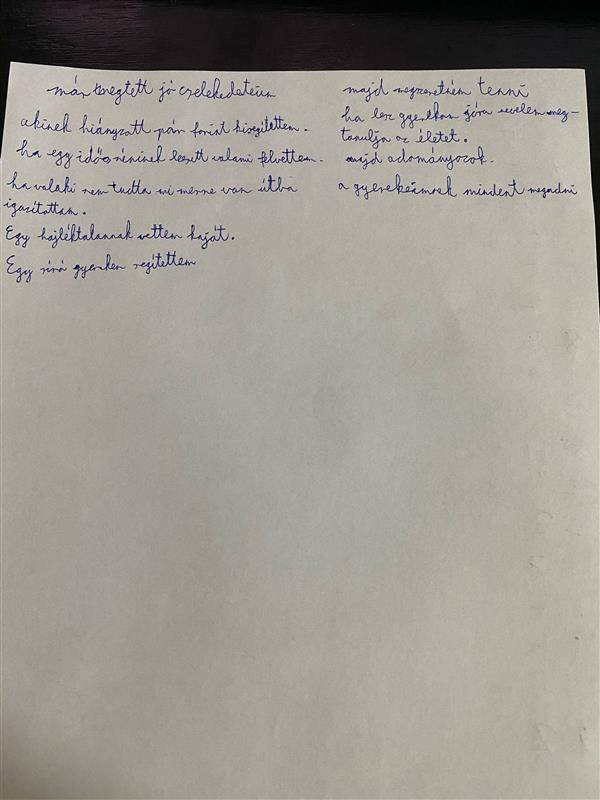 már megtett jó cselekedeteim
akinek hiányzott pár forint kisegítettem.
ha egy idős néninek leesett valami felvettem.
ha valaki nem tudta mi merre van útba
igazítottam.
Egy hajléktalannak vettem kaját.
Egy síró gyereken segítettem
majd megszeretném tenni
ha lesz gyerekem jóra nevelem meg-
tanulja az életet.
majd adományozok.
a gyerekeimnek mindent megadni